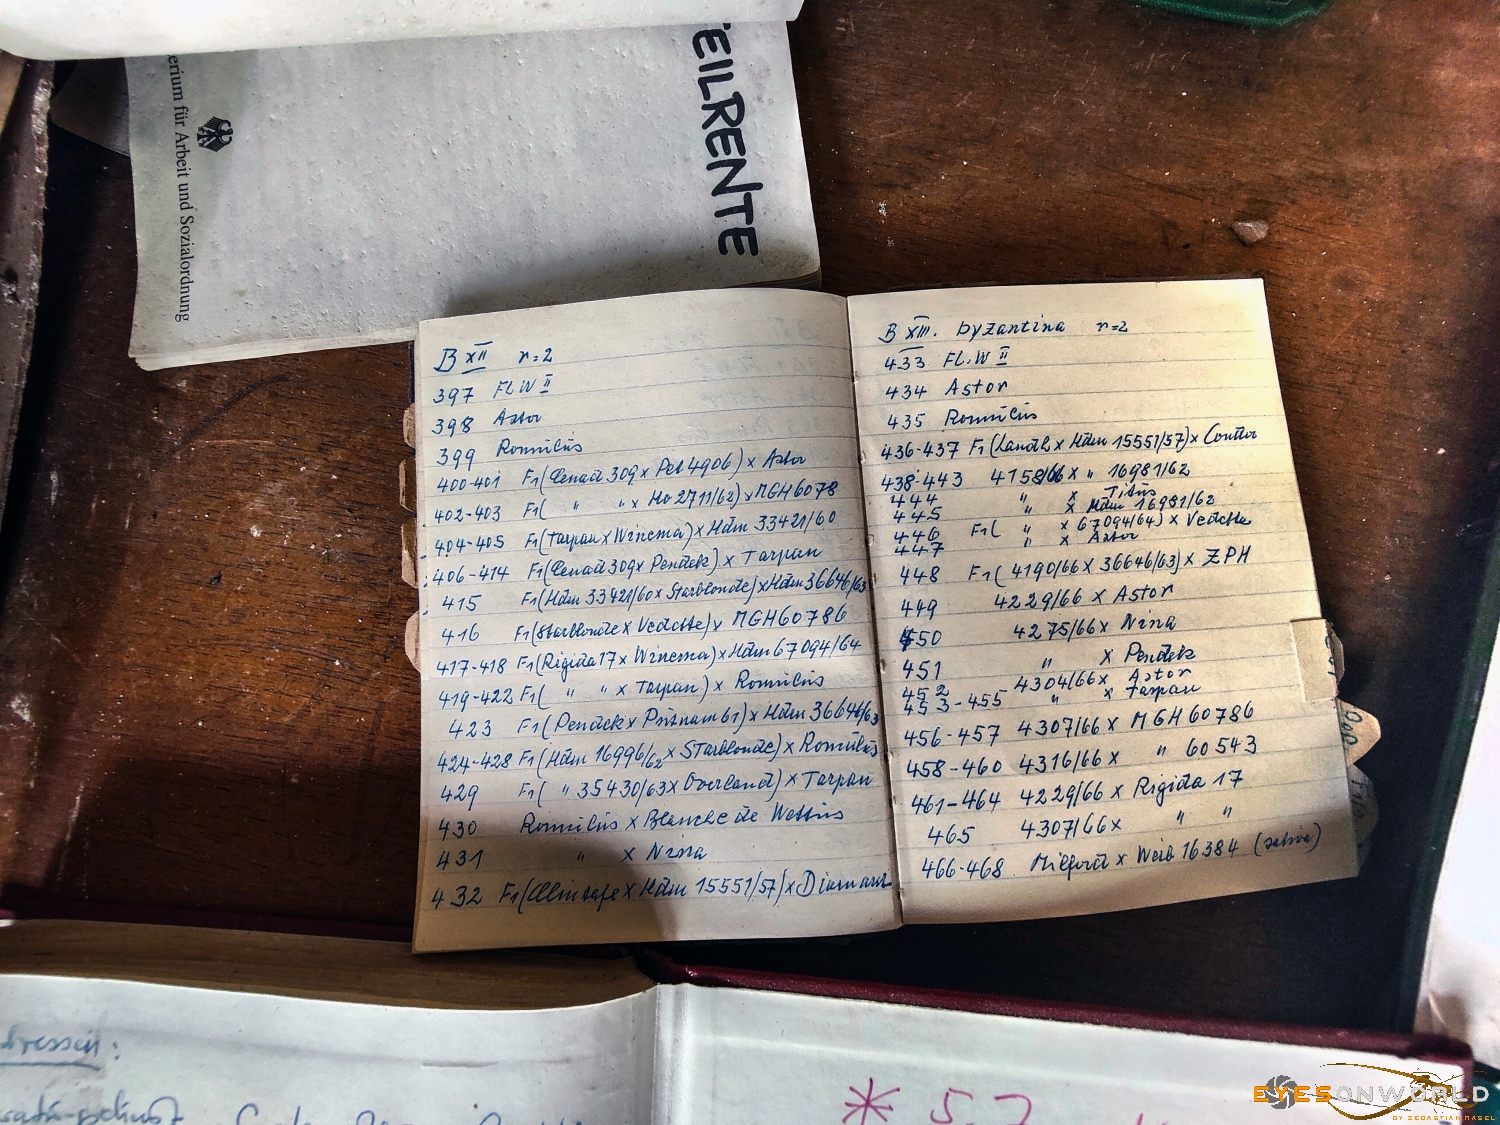 TEILRENTE
erium für Arbeit und Sozialordnung
B XII r=2
397 Fl.W II
398 Astor
399 Romulus
400-401 F1( 309 x Pet 4906) x Astor
402-403 F1( " " x Ho 2711/62) x MGH 6078
404-405 F1(Tarpan x Winema) x Hdm 33421/60
406-414 F1( 309 x Pendek) x Tarpan
415 F1(Hdm 33421/60 x Starblonde) x Hdm 36646/63
416 F1(Starblonde x Vedette) x MGH 60786
417-418 F1(Rigida 17 x Winema) x Hdm 67094/64
419-422 F1( " " x Tarpan) x Romulus
423 F1(Pendek x Putnam 61) x Hdm 36646/63
424-428 F1(Hdm 16996/62 x Starblonde) x Romulus
429 F1( " 35430/63 x Overland) x Tarpan
430 Romulus x Blanche de Wettus
431 " x Nina
432 F1( x Hdm 15551/57) x Diamant
B XIII. byzantina r=2
433 FL.W II
434 Astor
435 Romulus
436-437 F1( x Hdm 15551/57) x
438-443 4158/66 x " 16981/62
444 " x Titus
445 " x Hdm 16981/62
446 F1( " x 67094/64) x Vedette
447 " x Astor
448 F1(4190/66 x 36646/63) x ZPH
449 4229/66 x Astor
450 4275/66 x Nina
451 " x Pendek
452 4304/66 x Astor
453-455 " x Tarpan
456-457 4307/66 x MGH 60786
458-460 4316/66 x " 60543
461-464 4229/66 x Rigida 17
465 4307/66 x " "
466-468 Milford x Weib 16384
* 5.7
EYESONWORLD
BY SEBASTIAN NAGEL